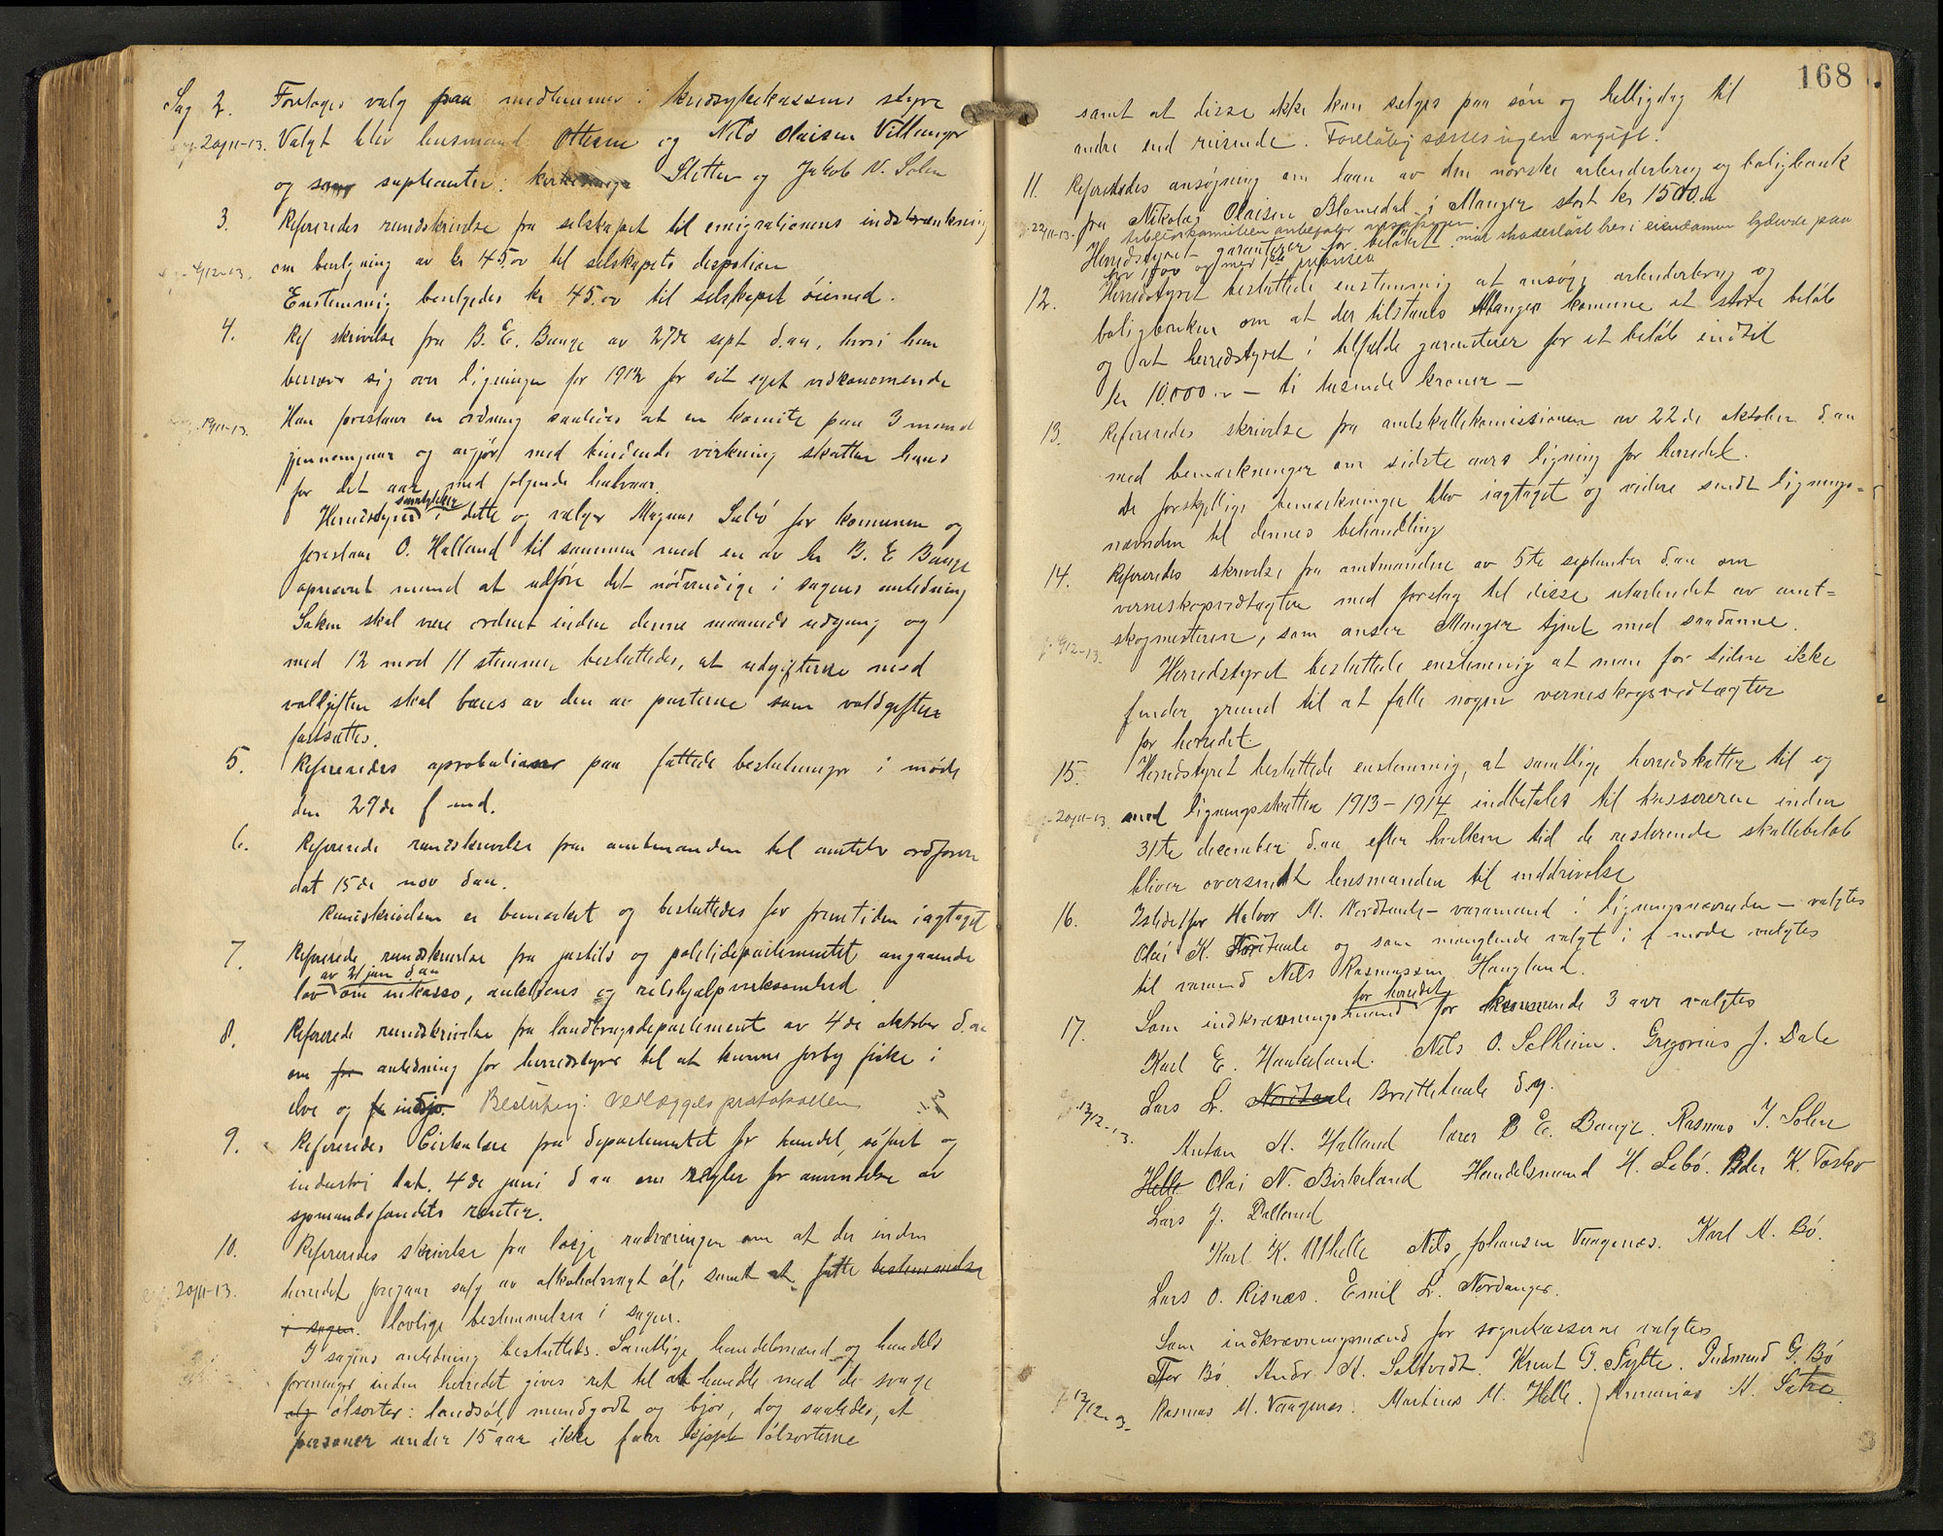 Sag 2. Foretages valg paa medlemmer i kredsykekassens styre
20/11-13. Valgt blev lensmand Ottesen og Nils Olaisen Villanger
og som supleanter: Sletten og Jakob N. Solem
3. Refereredes rundskrivelse fra selskapet til emigrationens indskrænkning
4/12-13. om bevilgning av kr 45,00 til selskapets
Enstemmig bevilgedes kr 45.00 til selskapet öiemed.
4. Ref skrivelse fra B. E. Bauge av 27de sept d.aa, hvori han
besvær sig over ligningen for 1912 for sit eget vedkommende
19/11-13. Han foreslaar en ordning saaledes at en komite paa 3 mænd
gjennemgaar og avgjør med bindende virkning skatten hans
for det aar med følgende halvaar.
samtykker
Herredstyret i dette og vælger Magnus Sæbö for komunen og
foreslaar O. Halland til sammen med en av hr B. E. Bauge
opnævnt mand at udføre det nödvendige i sagens anledning
Saken skal være ordnet inden denne maaneds udgang og
med 12 mod 11 stemmer besluttedes, at udgifterne med
voldgiften skal bæres av den av parterne som voldgiften
fastsættes.
5. Refereredes aprobationer paa fattede beslutninger i møde
den 29de f md.
6. Refererede rundskrivelse fra amtmanden til amtets ordförere
dat 15de nov d aa.
Rundskrivelsen er bemerket og besluttedes for fremtiden iagttaget
7. Refererede rundskrivelse fra justits og politidepartementet angaaende
av 21 juni d aa
lov om inkasso, auktions og retshjælpvirksomhed
8. Refererede rundskrivelse fra landbrugsdepartement av 4de oktober d. aa
om for anledning for herredstyret til at kunne forby fiske i
elve og indsjø. Beslutning: vedlægges protokollen
9. Refereredes Cirkulære fra departementet for handel, söfart og
industri dat. 4de juni d aa om regler for anvendelse av
sjømandsfondets renter.
10. Refereredes skrivelse fra losje om at der inden
20/11-13. herredet foregaar salg av alkoholsvagt öl, samt at fatte bestemmelse
i sagen. lovlige bestemmelser i sagen.
I sagens anledning besluttedes. Samtlige handelsmænd og handels
foreninger inden herredet gives ret til at handle med de svage
ölsorter: landsöl, mundgodt og bjor, dog saaledes, at
personer under 15 aar ikke faar kjøpt ölsorterne
168
samt at disse ikke kan selges paa søn og helligdag til
andre end reisende. Foreløbig sættes ingen avgift.
11. Refereredes ansøgning om laan av den norske arbeiderbrug og boligbank
fra Nikolai Olaisen Blomedal i Manger stort kr 1500.00
22/11-13. Arbeiderkomiteen anbefaler ansøgningen
Herredstyret garanterer for beløbet mot skadesløst brev i eiendommen lydende paa
kr 1500 og med 1ste prioritet
12. Herredstyret besluttede enstemmig at ansøge arbeiderbrug og
boligbanken om at der tilstaaes Manger komune et större beløb
og at herredstyret i tilfælde garanterer for et beløb indtil
kr 10.000.00 – ti tusinde kroner –
13. Refereredes skrivelse fra amtskattekomissionen av 22de oktober d.aa
med bemerkninger om sidste aars ligning for herredet.
De forskjellige bemerkninger blev iagttaget og videre sendt lignings=
nævnden til dennes behandling
14. Refereredes skrivelse fra amtmanden av 5te september d.aa om
verneskogvedtægter med forslag til disse utarbeidet av amt=
skogmesteren, som anser Manger tjent med saadanne.
4/12-13. Herredstyret besluttede enstemmig at man for tiden ikke
finder grund til at fatte nogen verneskogsvedtægter
for herredet.
15. Herredstyret besluttede enstemmig, at samtlige herredskatter til og
20/11-13. med ligningsskatten 1913–1914 indbetales til kassereren inden
31te december d.aa efter hvilken tid de resterende skattebeløb
bliver oversendt lensmanden til inddrivelse
16. Istedetfor Halvor M. Nordtvedt – varamand i ligningsnævnden – valgtes
Olai K. og som manglende valgt i f møde valgtes
til varamd Nils Rasmussen Haugland.
for herredet
17. Som indkrævningsmænd for kommende 3 aar valgtes
Karl E. Haukeland. Nils O. Solheim. Gregorius J. Dale
Lars L. d.y.
12/12-13. Anton M. Halland lærer B E. Bauge. Rasmus J. Solem
Helle Olai N. Birkeland Handelsmand H. Sæbö. Peder K. Toska
Lars J. Dallend
Karl K. Uthelle Nils Johansen Vaagenes. Karl M. Bö.
Lars O. Risnæs. Emil L. Nordanger.
Som indkrævningsmænd for sognekasserne valgtes
Tor Bö Andr. M. Soltvedt. Knut G. Sylte. Gudmund G. Bö
12/12-13 Rasmus M. Vaagenes. Martinus M. Helle. Ananias M. Sætre